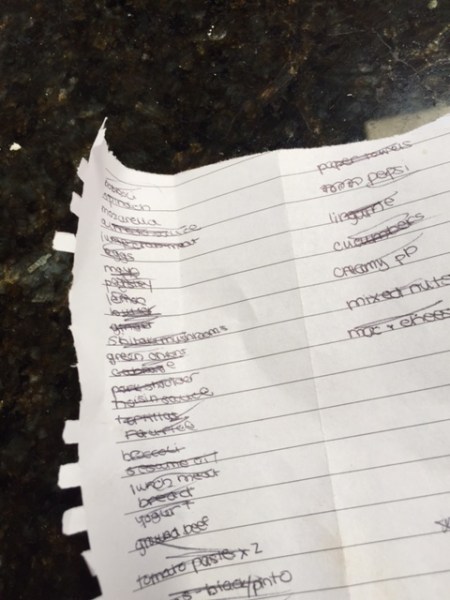 spinach
mozarella
eggs
mayo
parsley
lemon
butter
ginger
shitake mushrooms
green onions
cabbage
pork shoulder
hoisin sauce
tortillas
broccoli
sesame oil
lunch meat
bread
yogurt
ground beef
tomato paste x 2
black/pinto
paper towels
pepsi
linguine
cucumbers
creamy pb
mixed nuts
mac + cheese